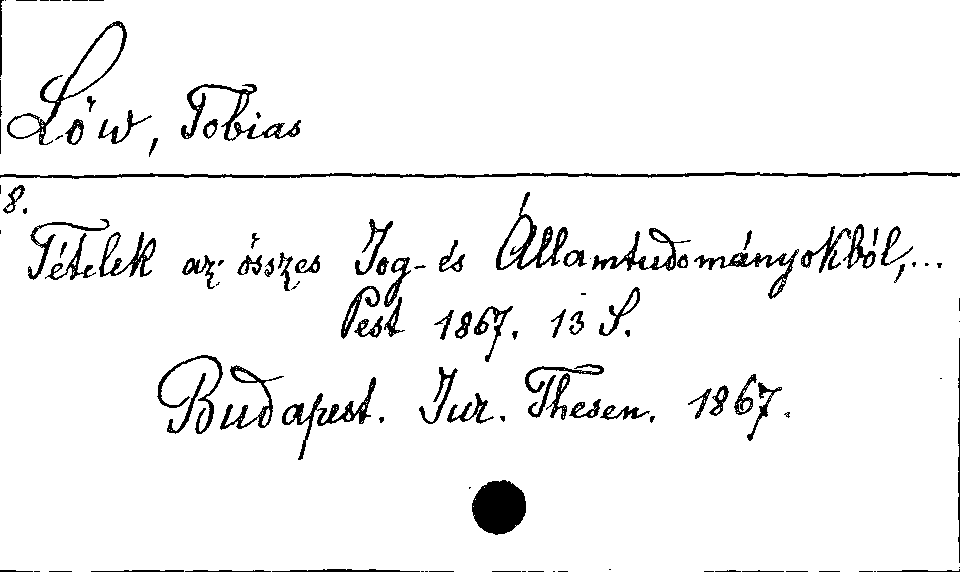 Löw, Tobias
8.
Tételek az összes Jog- és Államtudományokból,...
Pest 1867. 13 S.
Budapest. Jur. Thesen. 1867.